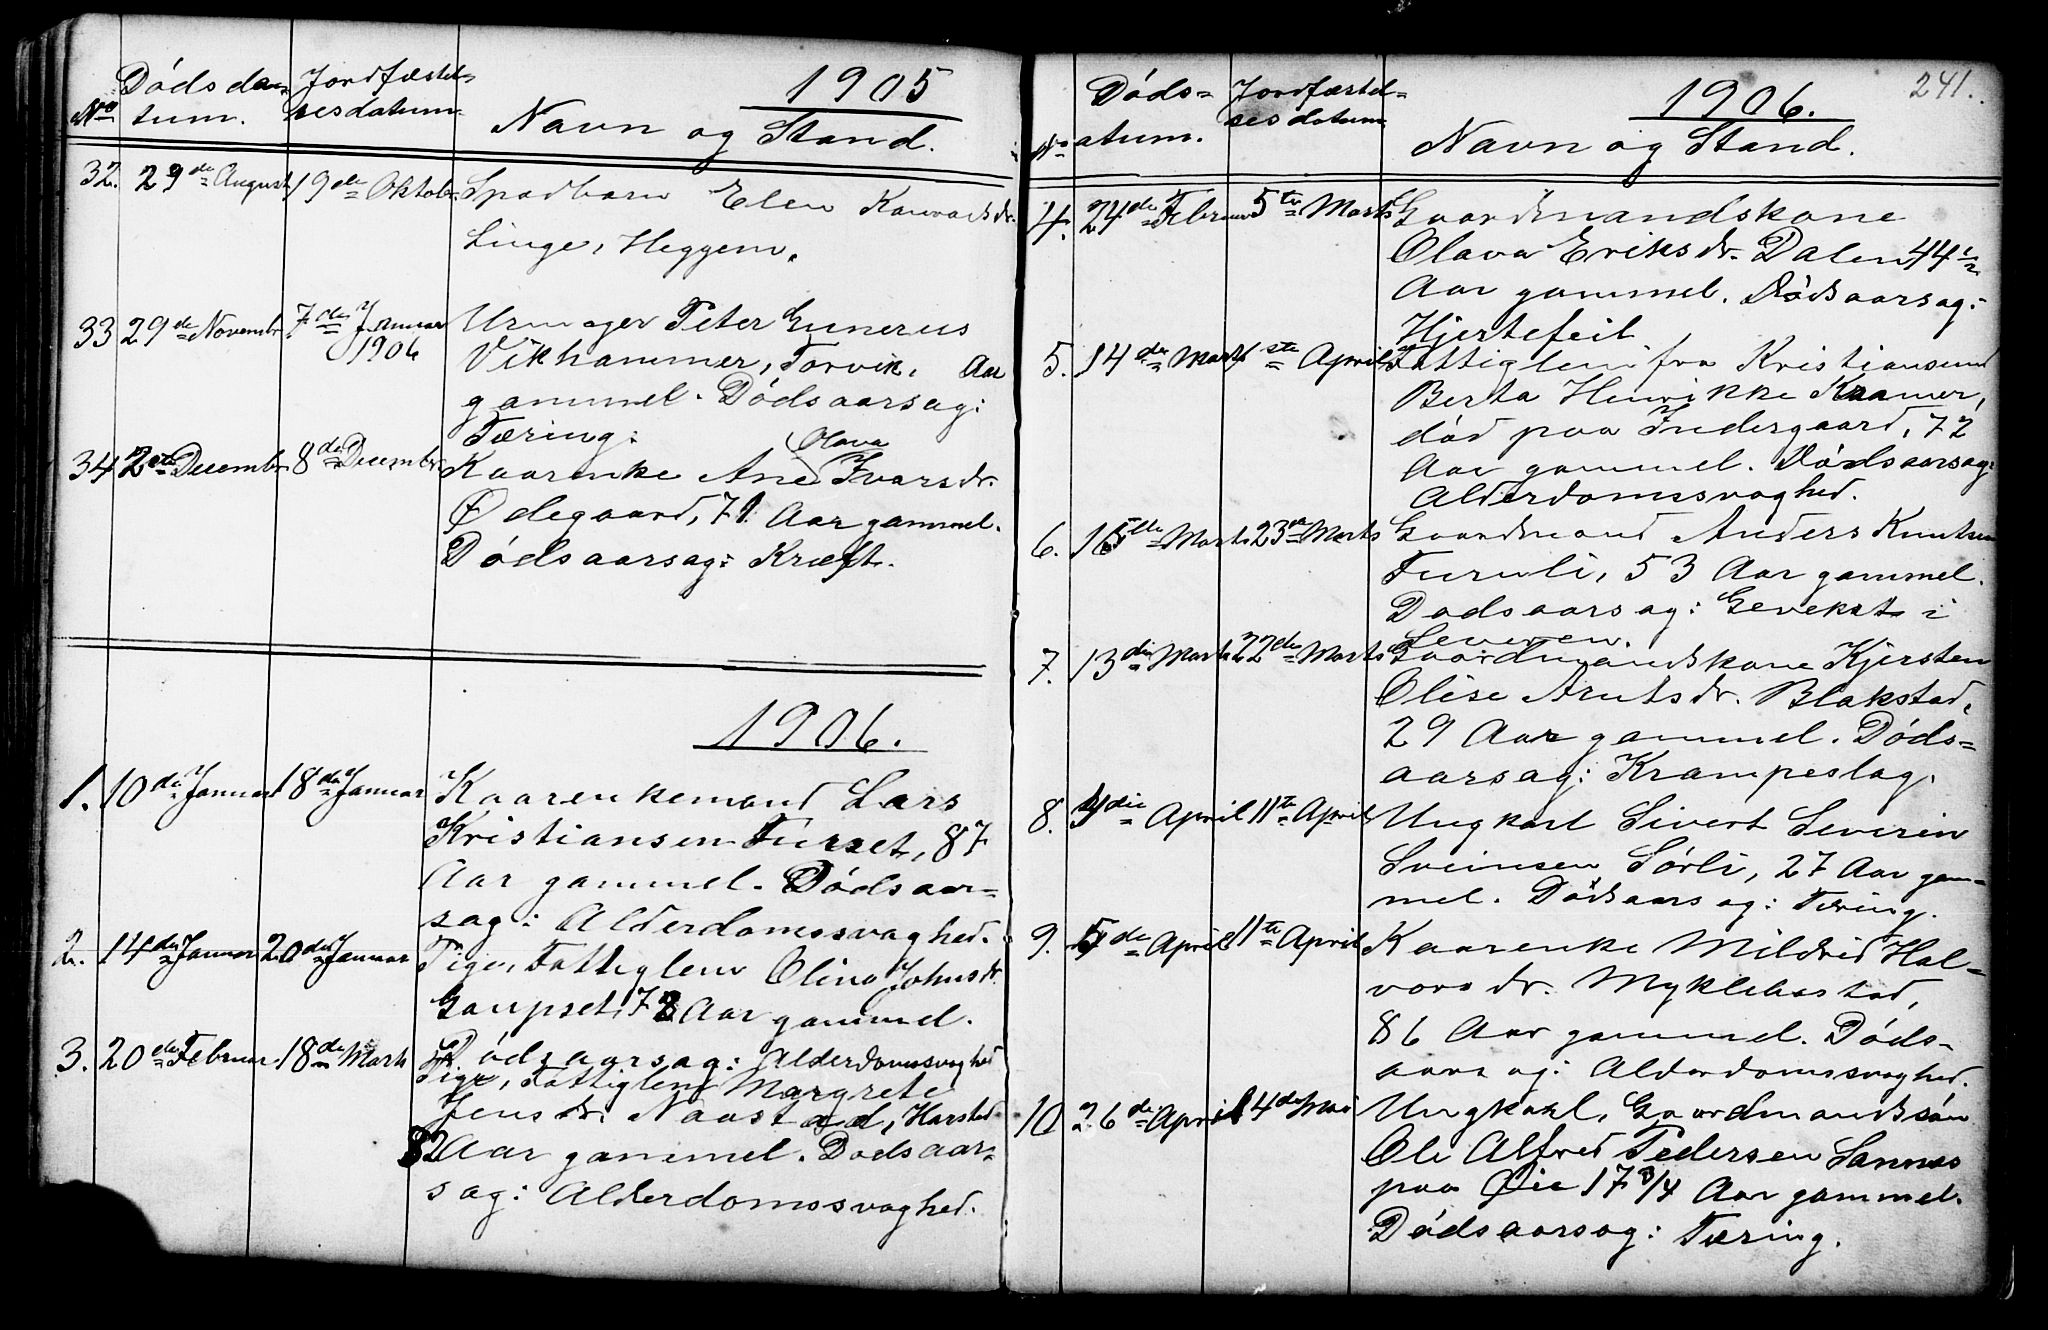 1905
No
Dødsda=
tum.
Jordfæstel=
sesdatum.
Navn og Stand.
32. 29de August 19de Oktob. Spædbarn Elen Kanvards dr.
Linge, Heggem.
33 29de Novembr. 7de Januar 1906 Urmager Peter Gunerus
Vikhammer, Torvik, Aar
gammel. Dødsaarsag:
Tæring.
34 2den Decembr. 8de Decembr. Kaarenke Ane Olava Ivarsdr.
Ødegaard, 71 Aar gammel.
Dødsaarsag: Kræft.
1906.
1. 10de Januar 18de Januar Kaarenkemand Lars
Kristiansen Furset, 87
Aar gammel. Dødsaar=
sag: Alderdomssvaghed.
2. 14de Januar 20de Januar Pige, Fattiglem Olina Johnsdr.
Gaupset, 78 Aar gammel.
Dødsaarsag: Alderdomssvaghed
3. 20de Februar 18de Marts Pige, Fattiglem Margrete
Jensdr. Naastad, Harstad
82 Aar gammel. Dødsaar=
sag: Alderdomssvaghed.
241.
1906.
No
Døds=
datum.
Jordfæstel=
sesdatum
Navn og Stand.
4. 24de Februar 5te Marts Gaardmandskone
Olava Eriksdr. Dalen, 44 1/2
Aar gammel. Dødsaarsag:
Hjertefeil.
5. 14de Marts 1ste April Fattiglem fra Kristiansund
Berta Henrikke Kramer,
død paa Indergaard, 72
Aar gammel. Dødsaarsag:
Alderdomssvaghed.
6. 15de Marts 23de Marts Gaardmand Anders Knutsen
Furuli, 53 Aar gammel.
Dødsaarsag: Gevekst i
Leveren.
7. 13de Marts 22de Marts Gaardmandskone Kjersten
Olise Arntsdr. Blakstad,
29 Aar gammel. Døds=
aarsag: Krampeslag.
8. 4die April 11te April Ungkarl Sivert Severin
Sveinsen Sørli, 27 Aar gam=
mel. Dødsaarsag: Tæring.
9. 5de April 11te April Kaarenke Mildrid Hal=
vorsdr. Myklebostad,
86 Aar gammel. Døds=
aarsag: Alderdomssvaghed.
10 26de April 4de Mai Ungkarl, Gaardmandssøn
Ole Alfred Pedersen Sannes
paa Øie 17 3/4 Aar gammel.
Dødsaarsag: Tæring.